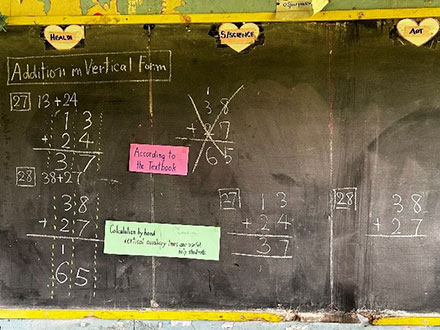 HEALTH
S/SCIENCE
ART
Addition in Vertical Form
27 13+24
13
+ 24
37
28 38+27
38
+ 27
1
65
According to
the Textbook
Calculation by hand
vertical auxiliary lines are useful
help students
38
+ 27
65
27 13
+ 24
37
28 38
+ 27